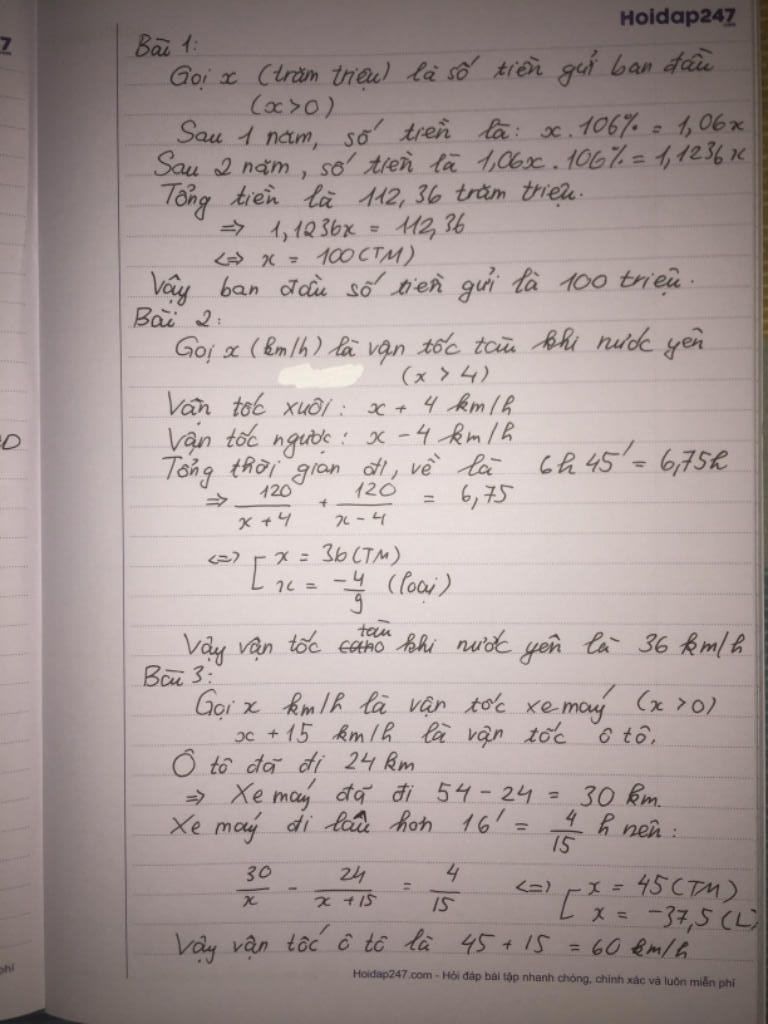 Hoidap247
7
Bài 1:
Gọi x (trăm triệu) là số tiền gửi ban đầu
(x>0)
Sau 1 năm, số tiền là: x.106% = 1,06x
Sau 2 năm, số tiền là 1,06x.106% = 1,1236x
Tổng tiền là 112,36 trăm triệu.
=> 1,1236x = 112,36
<=> x = 100(TM)
Vậy ban đầu số tiền gửi là 100 triệu.
Bài 2:
Gọi x (km/h) là vận tốc tàu khi nước yên
(x > 4)
Vận tốc xuôi: x + 4 km/h
Vận tốc ngược: x - 4 km/h
Tổng thời gian đi, về là 6h 45' = 6,75h
=> 120/(x+4) + 120/(x-4) = 6,75
<=> [ x = 36(TM)
x = -4/9 (loại)
Vậy vận tốc tàu khi nước yên là 36 km/h
Bài 3:
Gọi x km/h là vận tốc xe máy (x>0)
x + 15 km/h là vận tốc ô tô.
Ô tô đã đi 24 km
=> Xe máy đã đi 54 - 24 = 30 km.
Xe máy đi lâu hơn 16' = 4/15 h nên:
30/x - 24/(x+15) = 4/15 <=> [ x = 45(TM)
x = -37,5 (L)
Vậy vận tốc ô tô là 45 + 15 = 60 km/h
Hoidap247.com - Hỏi đáp bài tập nhanh chóng, chính xác và luôn miễn phí
phí